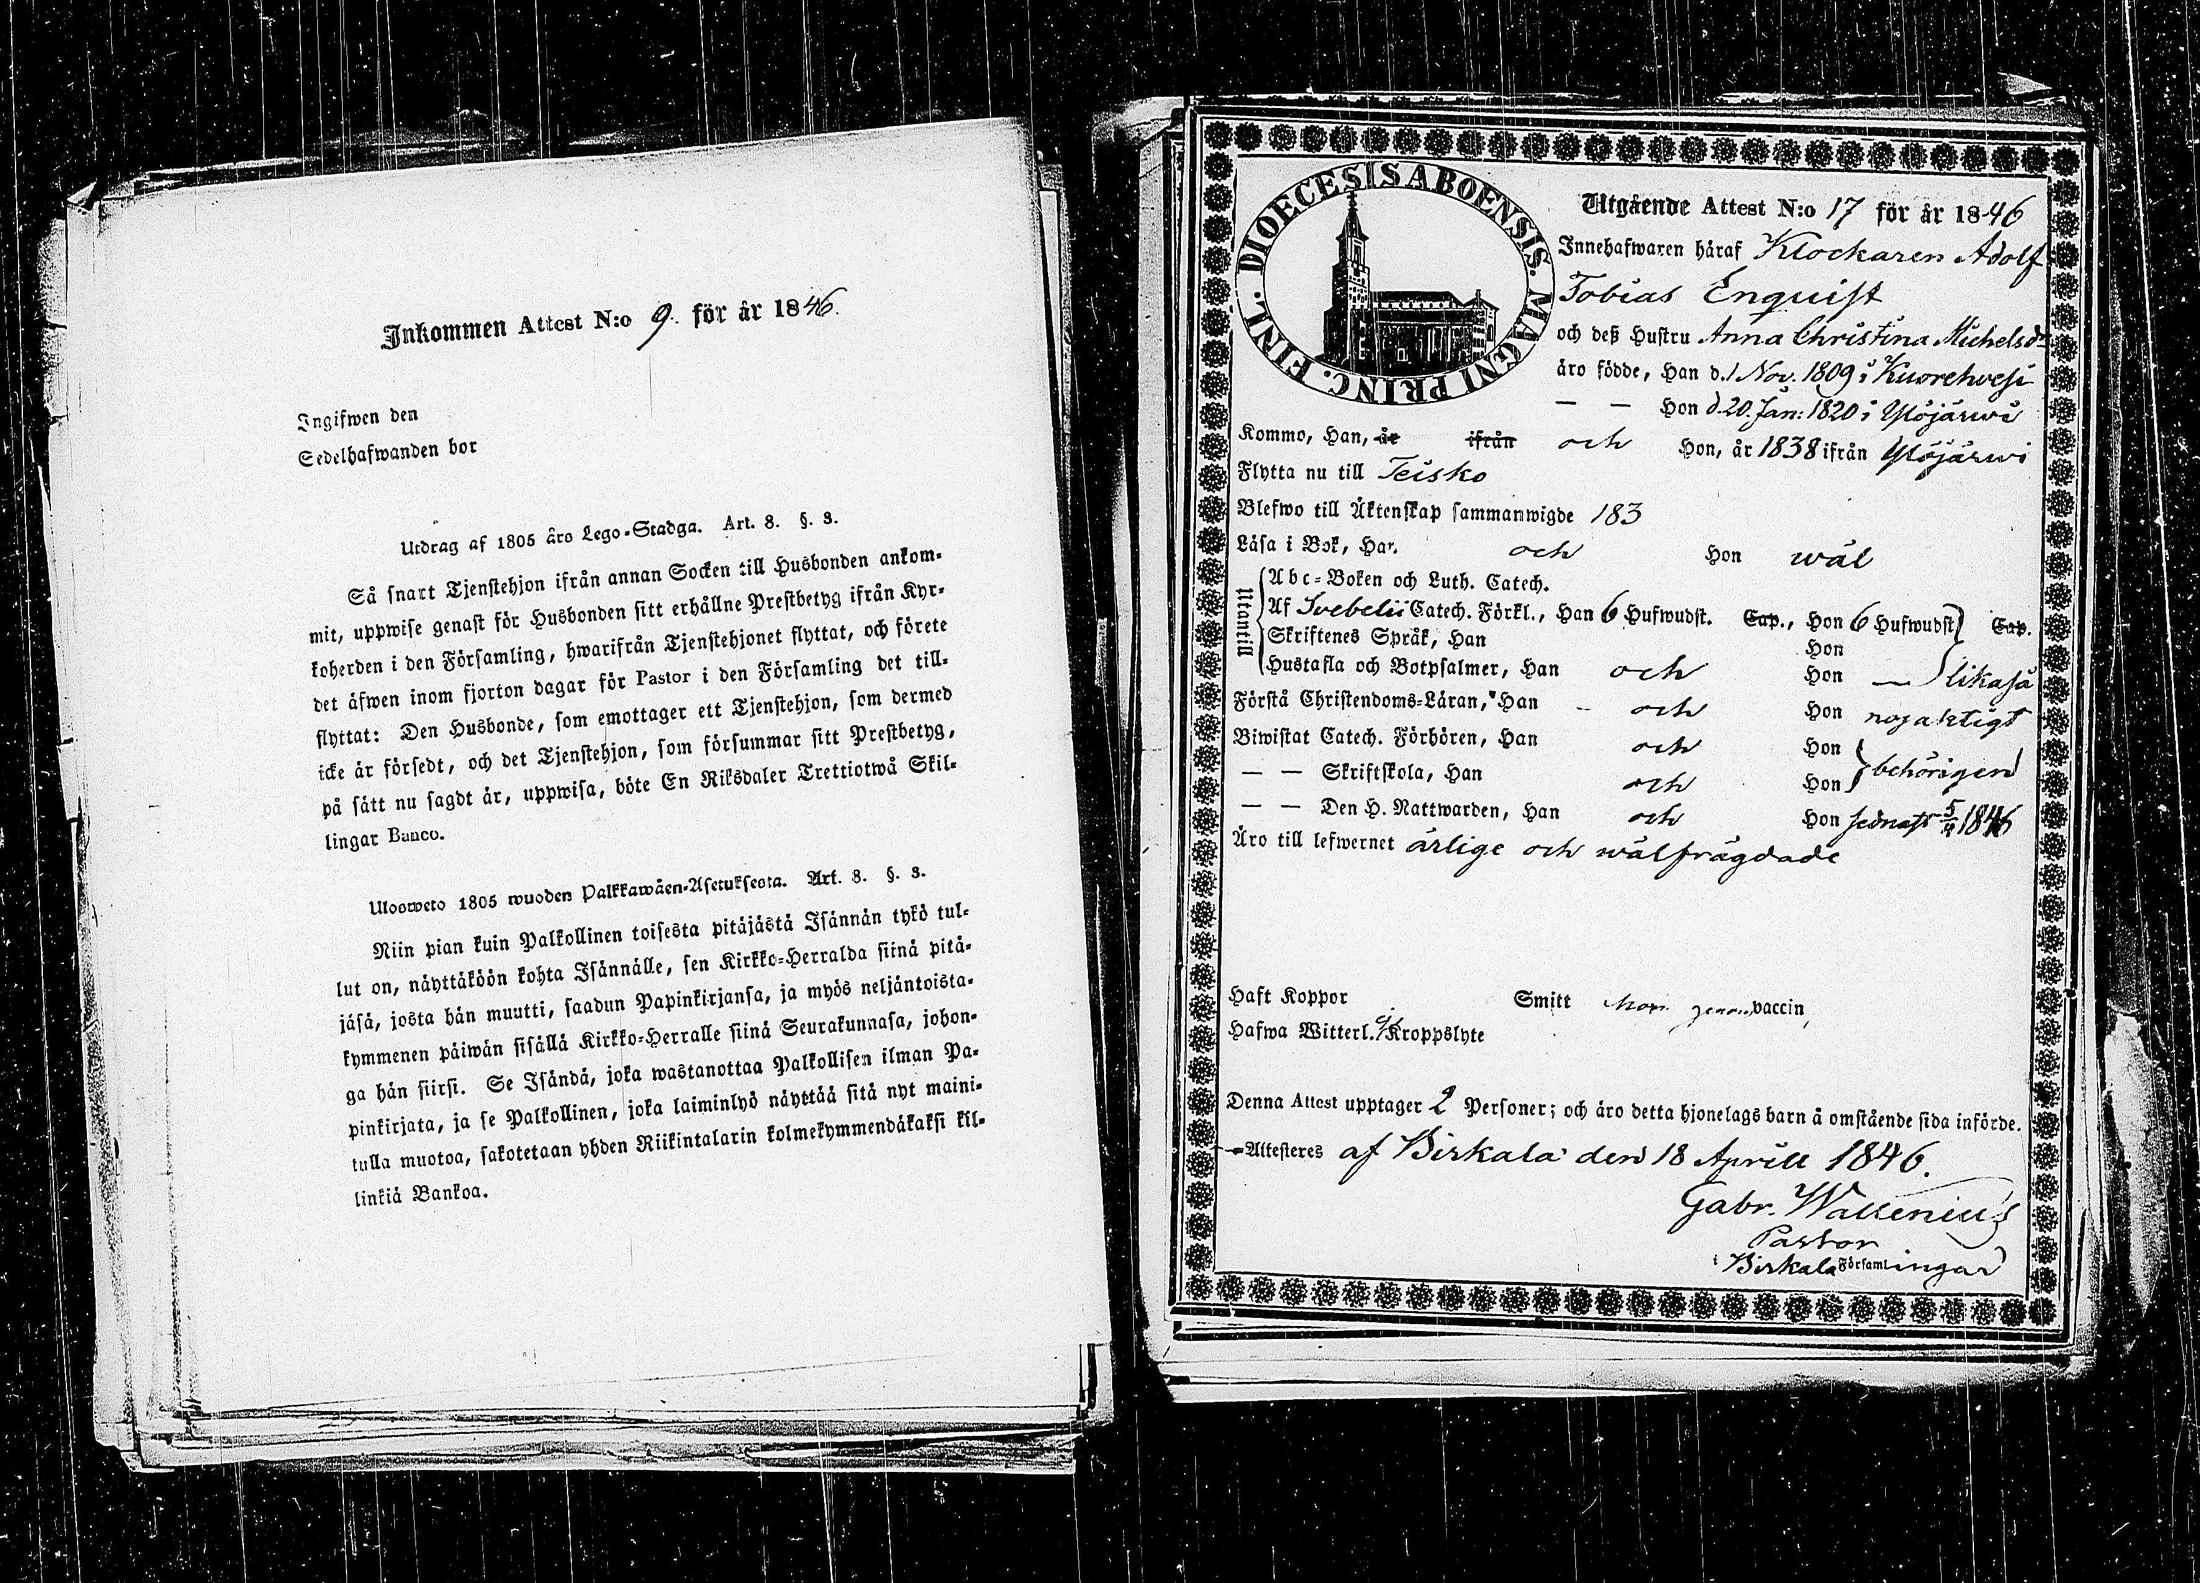 Inkommen Attest N:o 9. för år 1846.
Ingifwen den
Sedelhafwanden bor
Utdrag af 1805 års Lego-Stadga. Art. 8. §. 3.
Så snart Tjenstehjon ifrån annan Socken till Husbonden ankom-
mit, uppwise genast för Husbonden sitt erhållne Prestbetyg ifrån Kyr-
koherden i den Församling, hwarifrån Tjenstehjonet flyttat, och förete
det äfwen inom fjorton dagar för Pastor i den Församling det till-
flyttat: Den Husbonde, som emottager ett Tjenstehjon, som dermed
icke är försedt, och det Tjenstehjon, som försummar sitt Prestbetyg,
på sätt nu sagdt är, uppwisa, böte En Riksdaler Trettiotwå Skil-
lingar Banco.
Uloosweto 1805 wuoden Palkkawäen-Asetuksesta. Art. 8. §. 3.
Niin pian kuin Palkollinen toisesta pitäjästä Isännän tykö tul-
lut on, näyttäköön kohta Isännälle, sen Kirkko-Herralda siinä pitä-
jäsä, josta hän muutti, saadun Papinkirjansa, ja myös neljäntoista-
kymmenen päiwän sisällä Kirkko-Herralle siinä Seurakunnasa, johon-
ga hän siirsi. Se Isändä, joka wastanottaa Palkollisen ilman Pa-
pinkirjata, ja se Palkollinen, joka laiminlyö näyttää sitä nyt maini-
tulla muotoa, sakotetaan yhden Riikintalarin kolmekymmendäkaksi kil-
linkiä Bankoa.
DIOECESIS ABOENSIS. MAGNI PRINC. FINL.
Utgående Attest N:o 17 för år 1846
Innehafwaren häraf Klockaren Adolf
Tobias Enquist
och deß Hustru Anna Christina Michelsd:r
äro födde, Han d. 1 Nov. 1809 i Kuorehvesi
— — Hon d. 20. Jan: 1820 i Ylöjärwi
Kommo, Han, år ifrån och Hon, år 1838 ifrån Ylöjärwi
Flytta nu till Teisko
Blefwo till Äktenskap sammanwigde 183
Läsa i Bok, Han och Hon wäl
Utantill
Abc-Boken och Luth. Catech.
Af Svebelii Catech. Förkl., Han 6 Hufwudst. Cap., Hon 6 Hufwudst Cap.
Skriftenes Språk, Han Hon
Hustafla och Botpsalmer, Han och Hon — likaså
Förstå Christendoms-Läran, Han - och Hon nojaktigt
Biwistat Catech. Förhören, Han och Hon
— — Skriftskola, Han och Hon behörigen
— — Den H. Nattwarden, Han och Hon sednast 5/4 1846
Äro till lefwernet ärlige och wälfrägdade
Haft Koppor Smitt vaccin
Hafwa Witterl. ej Kroppslyte
Denna Attest upptager 2 Personer; och äro detta hjonelags barn å omstående sida införde.
Attesteres af Birkala den 18 Aprill 1846.
Gabr. Wallenius
Pastor
i Birkala Församlingar